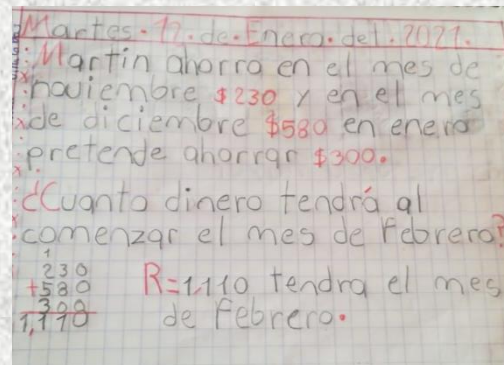 Martes.12.de.Enero.del.2021.
Martín ahorra en el mes de
noviembre $230 y en el mes
de diciembre $580 en enero
pretende ahorrar $300.
¿Cuanto dinero tendrá al
comenzar el mes de Febrero?
1
230
+580 R=1,110 tendra el mes
300 de Febrero.
1,110